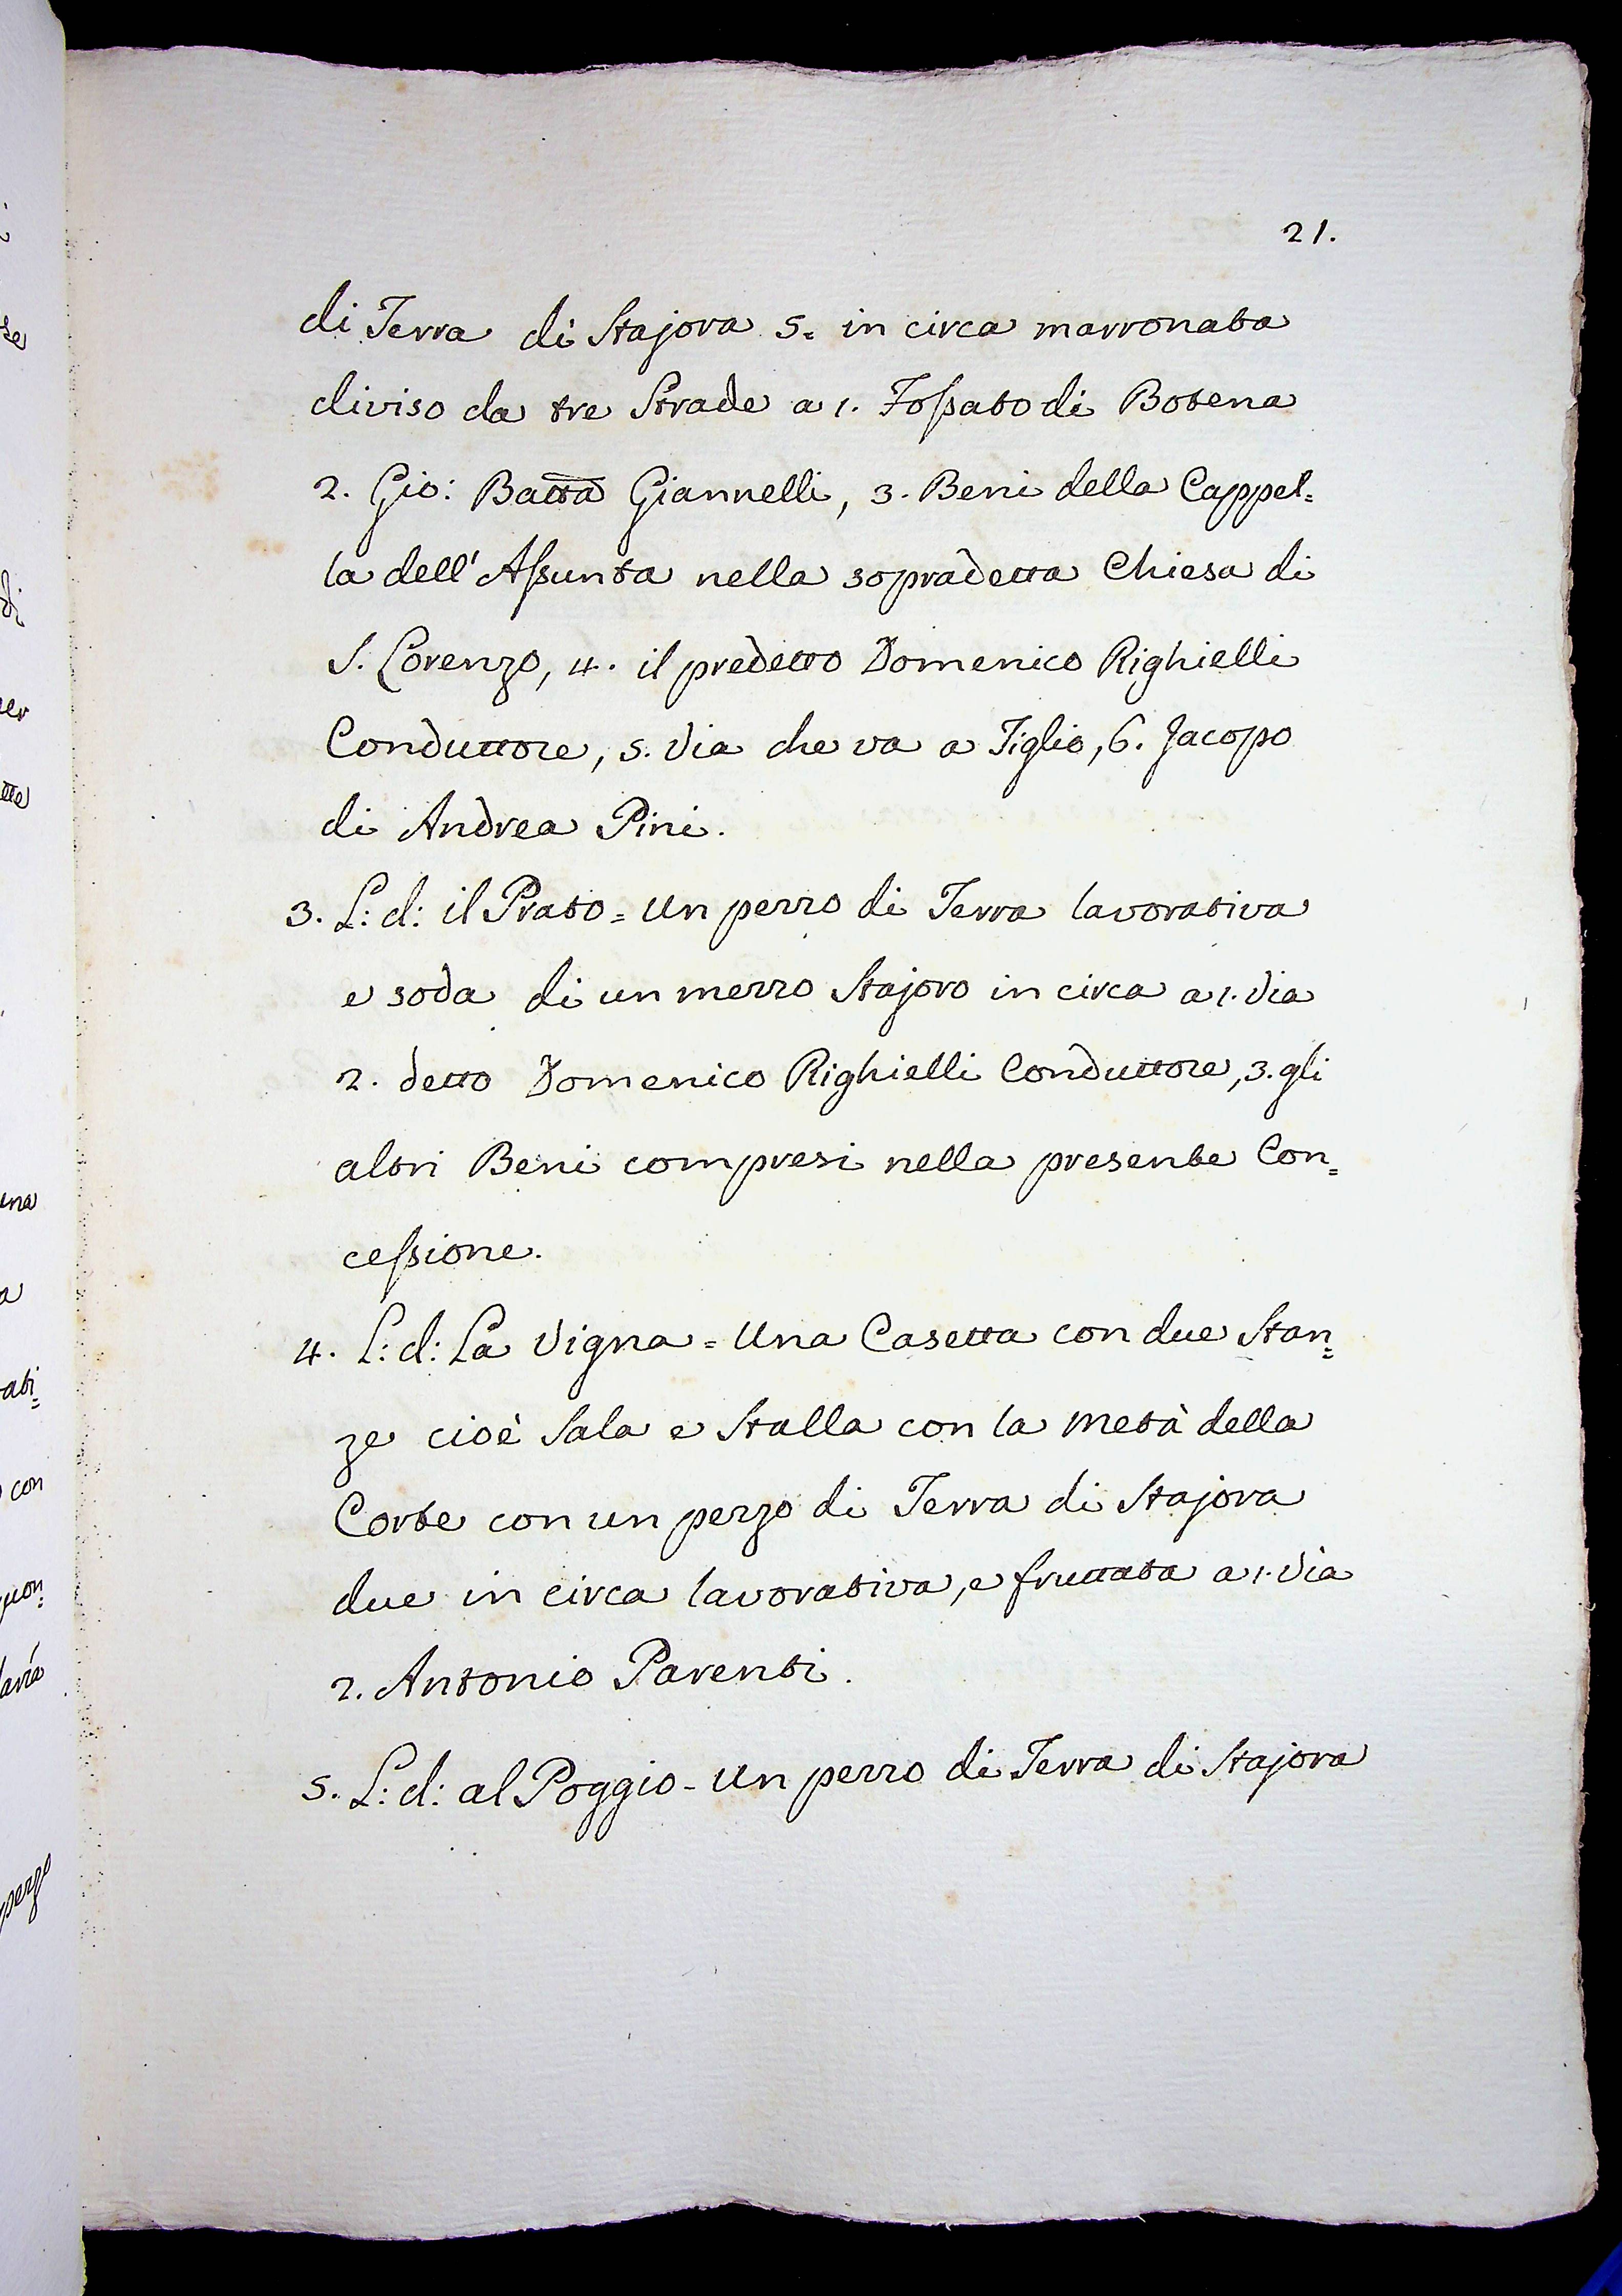 21.
di Terra di Stajora 5. in circa marronata
diviso da tre Strade a 1. Fossato di Botena
2. Gio: Batta Giannelli, 3. Beni della Cappel=
la dell'Assunta nella sopradetta Chiesa di
S. Lorenzo, 4. il predetto Domenico Righielli
Conduttore, 5. Via che va a Tiglio, 6. Jacopo
di Andrea Pini.
3. L: d: il Prato = Un pezzo di Terra lavorativa
e soda di un mezzo Stajoro in circa a 1. Via
2. detto Domenico Righielli Conduttore, 3. gli
altri Beni compresi nella presente Con=
cessione.
4. L: d: La Vigna = Una Casetta con due Stan=
ze cioè Sala e Stalla con la metà della
Corte con un pezzo di Terra di Stajora
due in circa lavorativa, e fruttata a 1. Via
2. Antonio Parenti.
5. L: d: al Poggio - Un pezzo di Terra di Stajora